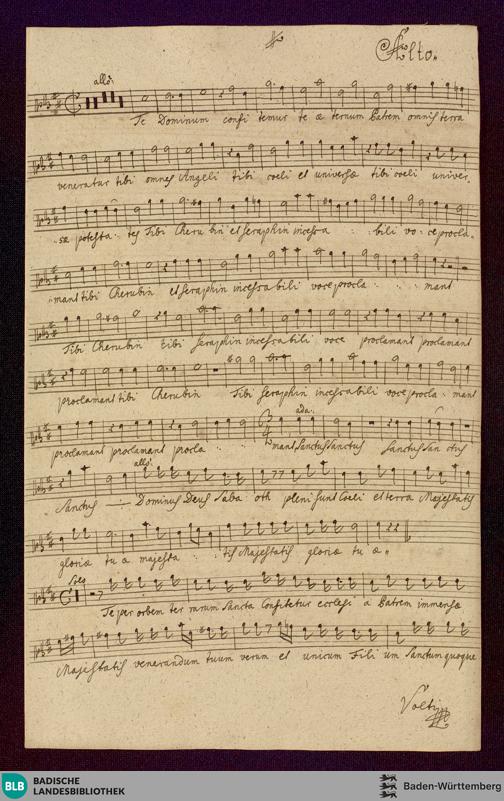 Alto.
allo:
Te Dominum confi temur te æ ternum Patrem omnis terra
veneratur tibi omnes Angeli tibi coeli et universæ tibi coeli univer,
sæ potesta tes Tibi Cherubin et Seraphin incessa bili vo ce procla,
mant tibi Cherubin et Seraphin incessabili voce procla mant
Tibi Cherubin tibi Seraphin incessabili voce proclamant proclamant
proclamant tibi Cherubin Tibi Seraphin incessabili voce procla mant
ada:
proclamant proclamant procla mant Sanctus Sanctus Sanctus San ctus
allo:
Sanctus Dominus Deus Saba oth pleni sunt Coeli et terra Majestatis
gloriæ tu æ majesta tis Majestatis gloriæ tu æ
Te per orbem ter rarum Sancta Confitetur ecclesi a Patrem immensæ
Majestatis venerandum tuum verum et unicum Fili um Sanctum quoque
Volti
BLB BADISCHE
LANDESBIBLIOTHEK
Baden-Württemberg